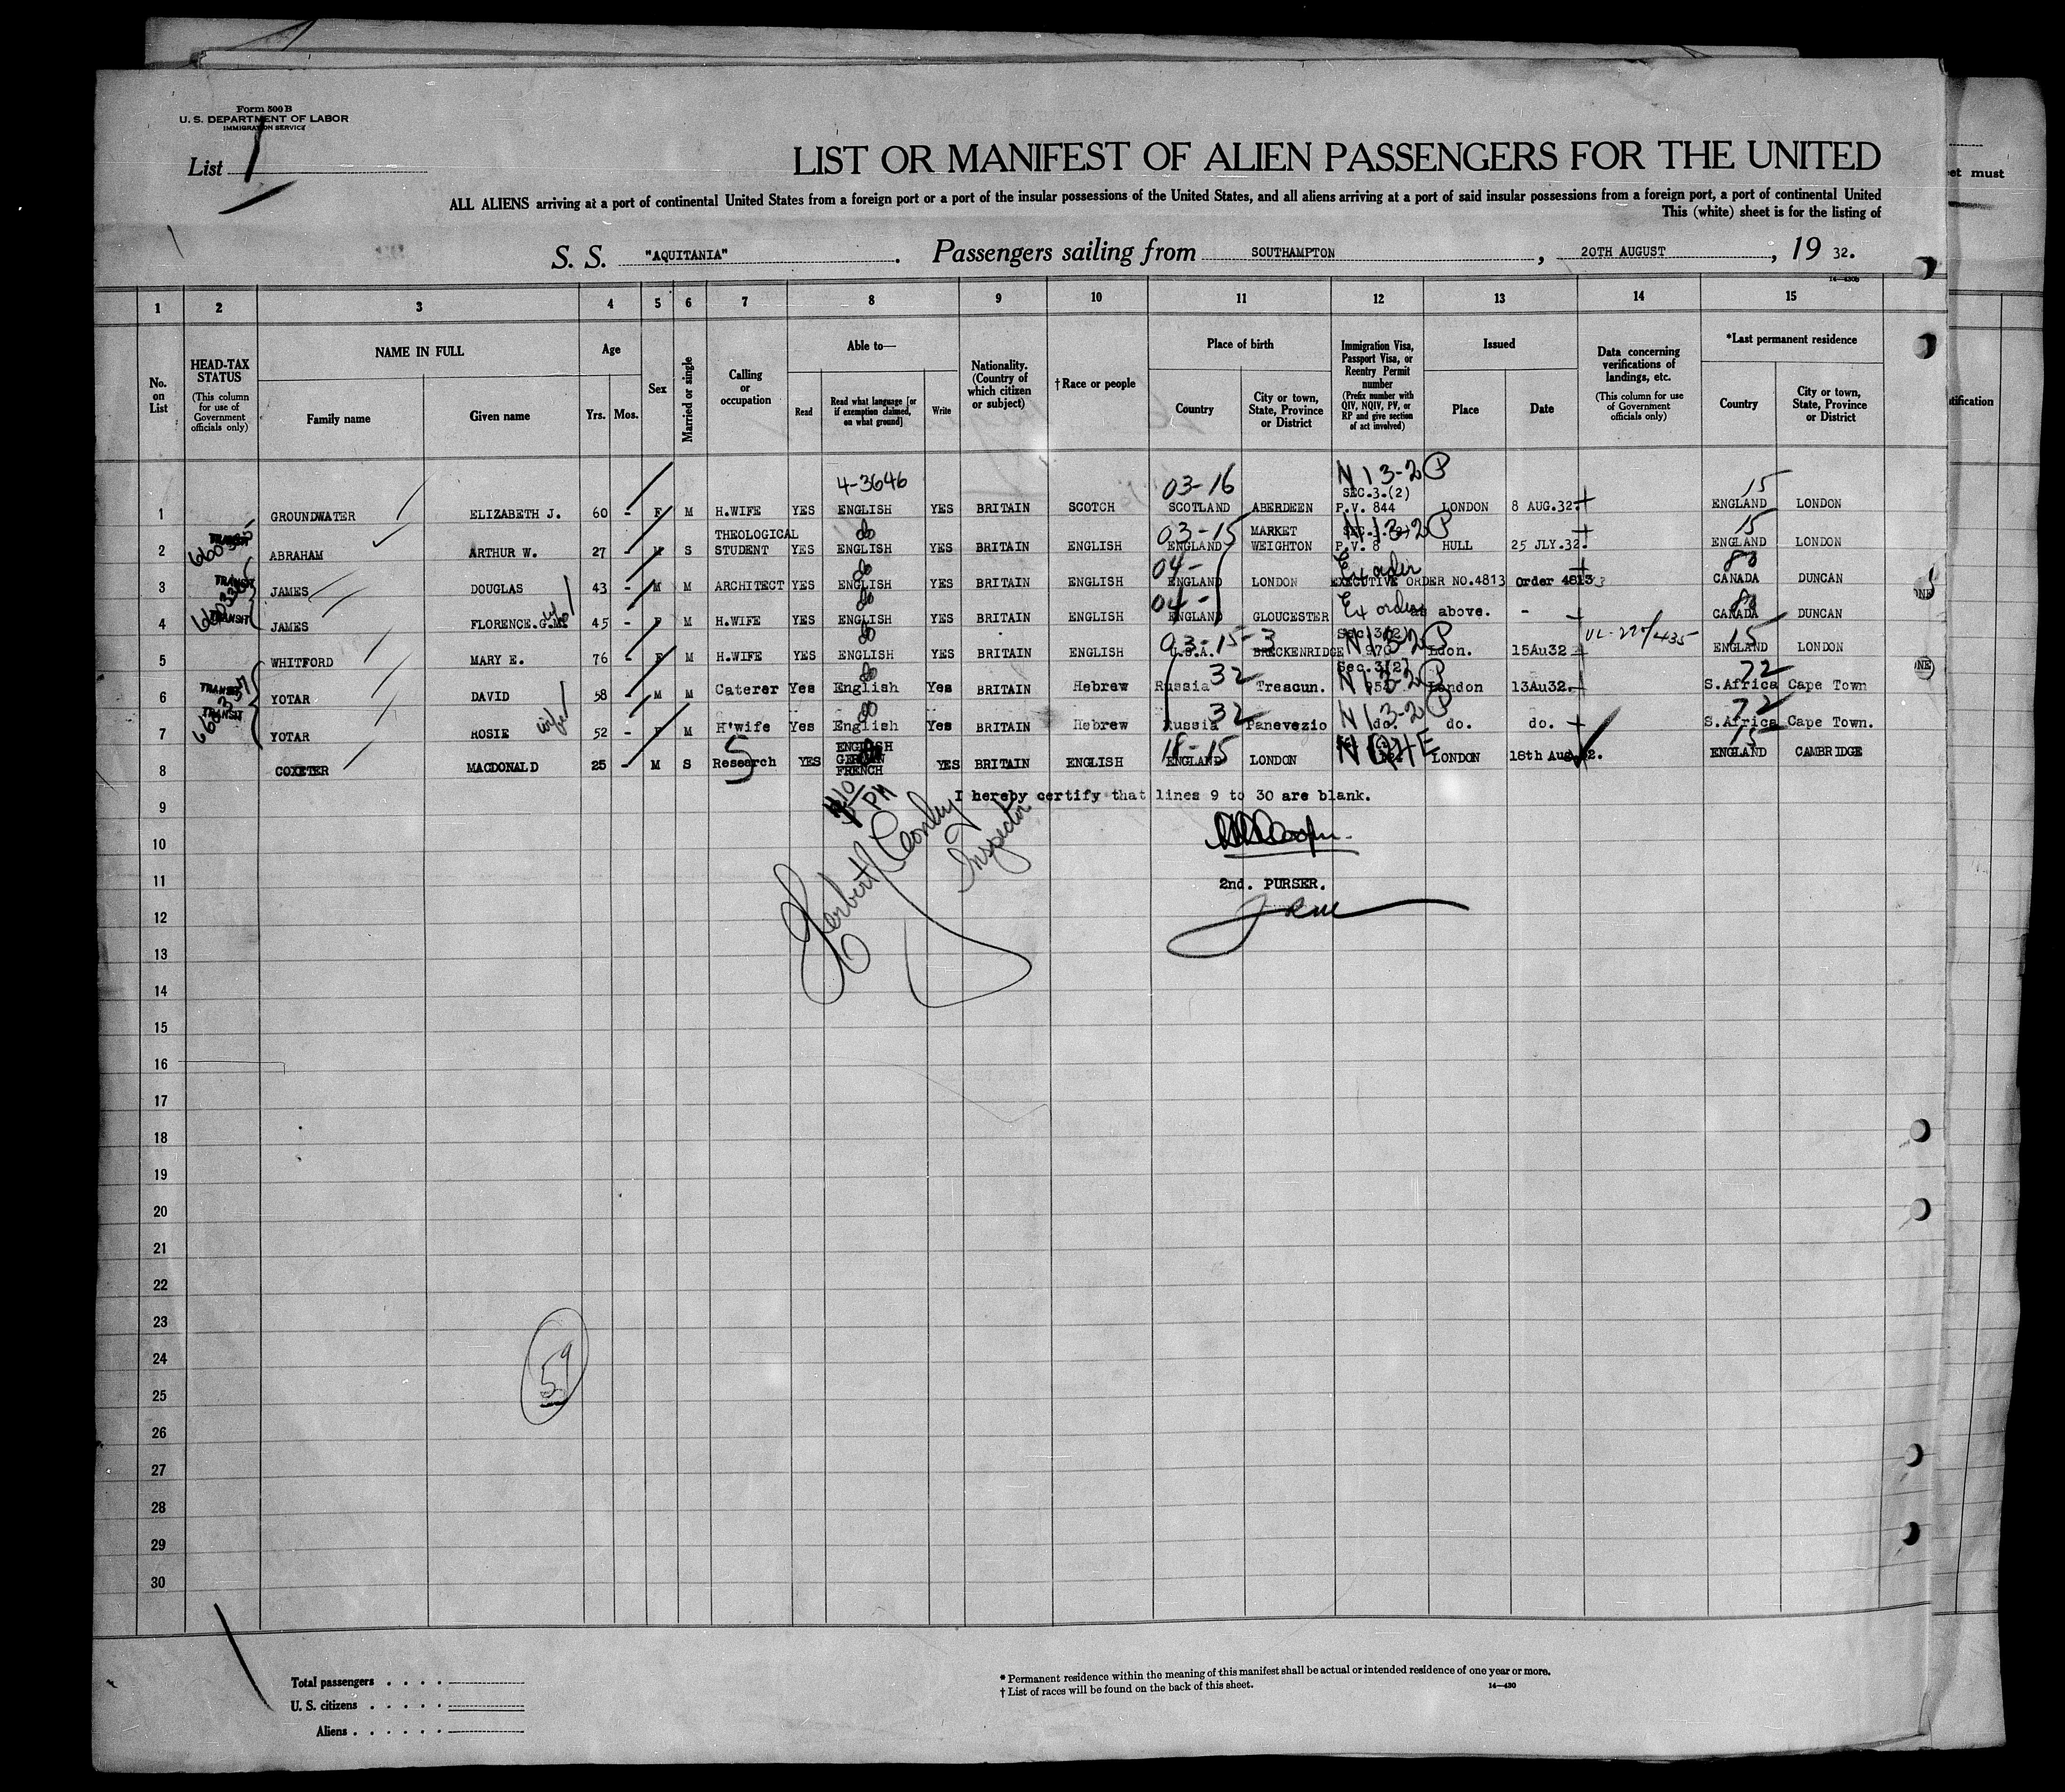 Form 500 B
U. S. DEPARTMENT OF LABOR
IMMIGRATION SERVICE
List 1
LIST OR MANIFEST OF ALIEN PASSENGERS FOR THE UNITED
ALL ALIENS arriving at a port of continental United States from a foreign port or a port of the insular possessions of the United States, and all aliens arriving at a port of said insular possessions from a foreign port, a port of continental United
This (white) sheet is for the listing of
et must
S. S. "AQUITANIA". Passengers sailing from SOUTHAMPTON, 20TH AUGUST, 19 32.
14-430b
1 2 3 4 5 6 7 8 9 10 11 12 13 14 15
No. on List
HEAD-TAX STATUS (This column for use of Government officials only)
NAME IN FULL
Family name Given name
Age
Yrs. Mos.
Sex
Married or single
Calling or occupation
Able to—
Read Read what language [or if exemption claimed, on what ground] Write
Nationality. (Country of which citizen or subject)
† Race or people
Place of birth
Country City or town, State, Province or District
Immigration Visa, Passport Visa, or Reentry Permit number (Prefix number with QIV, NQIV, PV, or RP and give section of act involved)
Issued
Place Date
Data concerning verifications of landings, etc. (This column for use of Government officials only)
*Last permanent residence
Country City or town, State, Province or District
4-3646 03-16 N 13-2 P 15
SEC.3.(2)
1 GROUNDWATER ELIZABETH J. 60 - F M H.WIFE YES ENGLISH YES BRITAIN SCOTCH SCOTLAND ABERDEEN P.V. 844 LONDON 8 AUG.32. ENGLAND LONDON
TRANSIT THEOLOGICAL do 03-15 MARKET N 13-2 P 15
2 ABRAHAM ARTHUR W. 27 - M S STUDENT YES ENGLISH YES BRITAIN ENGLISH ENGLAND WEIGHTON P.V. 8 HULL 25 JLY.32. ENGLAND LONDON
TRANSIT do 04- Ex order 80
3 JAMES DOUGLAS 43 - M M ARCHITECT YES ENGLISH YES BRITAIN ENGLISH ENGLAND LONDON EXECUTIVE ORDER NO.4813 Order 4813 CANADA DUNCAN
TRANSIT wife do 04- Ex order 80
4 JAMES FLORENCE.G.M. 45 - F M H.WIFE YES ENGLISH YES BRITAIN ENGLISH ENGLAND GLOUCESTER as above. - CANADA DUNCAN
do 03-15-3 Sec.3(2) N 13-2 P 15
5 WHITFORD MARY E. 76 - F M H.WIFE YES ENGLISH YES BRITAIN ENGLISH U.S.A. BRECKENRIDGE 970 Ldon. 15Au32 ENGLAND LONDON
TRANSIT do 32 Sec.3(2) N 13-2 P 72
6 YOTAR DAVID 58 - M M Caterer Yes English Yes BRITAIN Hebrew Russia Trescun. London 13Au32. S.Africa Cape Town
TRANSIT wife do 32 N 13-2 P 72
7 YOTAR ROSIE 52 - F M H'wife Yes English Yes BRITAIN Hebrew Russia Panevezio do. do. do. S.Africa Cape Town.
S ENGLISH GERMAN FRENCH 18-15 15
8 COXETER MACDONALD 25 - M S Research YES YES BRITAIN ENGLISH ENGLAND LONDON LONDON 18th Aug 32. ENGLAND CAMBRIDGE
9 I hereby certify that lines 9 to 30 are blank.
10
11 2nd. PURSER.
Inspector
12
13
14
15
16
17
18
19
20
21
22
23
24
59
25
26
27
28
29
30
Total passengers
U. S. citizens
Aliens
* Permanent residence within the meaning of this manifest shall be actual or intended residence of one year or more.
† List of races will be found on the back of this sheet.
14—430